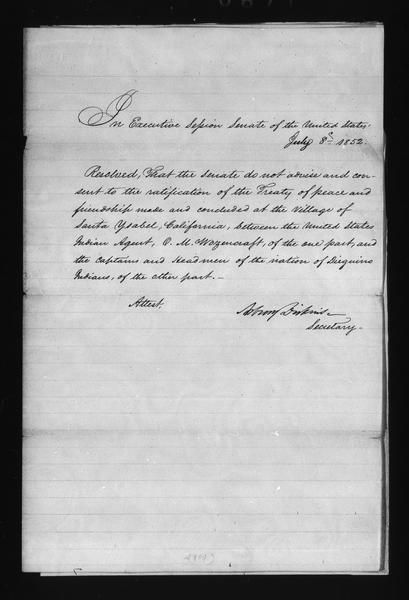 In Executive Session Senate of the United States.
July 8th 1852.
Resolved, That the Senate do not advise and con-
sent to the ratification of the Treaty of peace and
friendship made and concluded at the Village of
Santa Ysabel, California, between the United States
Indian Agent, O. M. Wozencraft, of the one part, and
the Captains and Headmen of the nation of Dieguino
Indians, of the other part. —
Attest,
Asbury Dickins
Secretary.